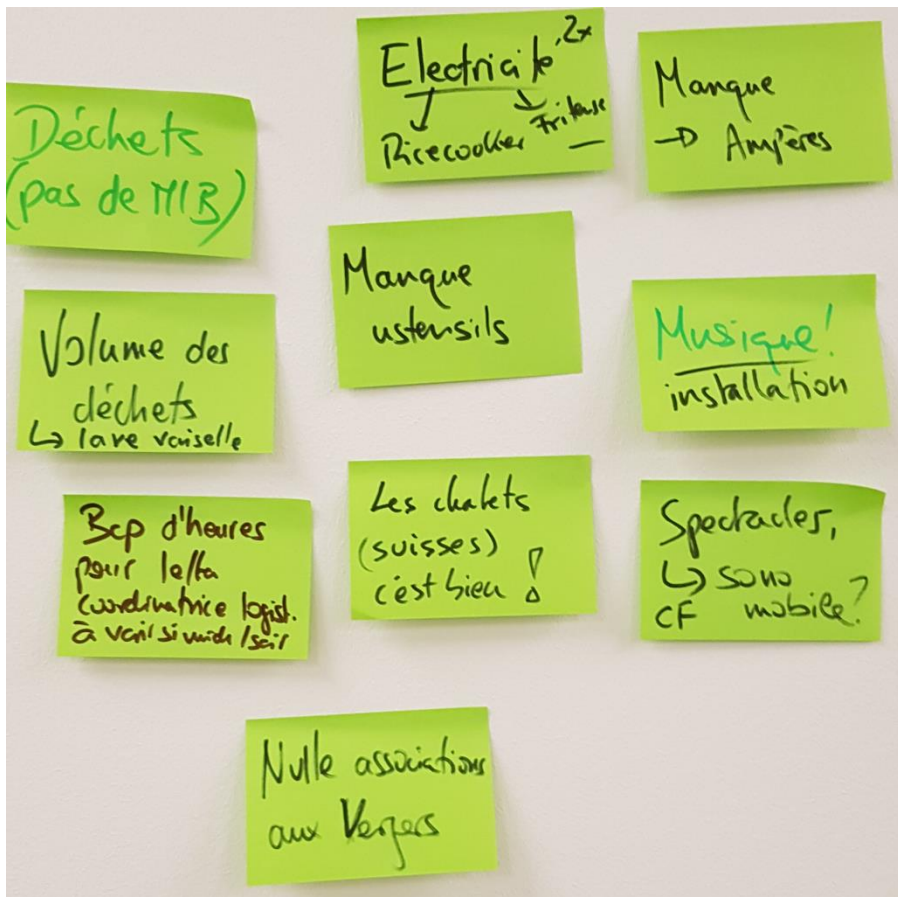 Electricité 2x
Ricecooker Friteuse
Manque
→ Ampères
Déchets
(pas de MIB)
Manque
ustensils
Volume des
déchets
↳ lave vaiselle
Musique!
installation
Bcp d'heures
pour le/la
coordinatrice logist.
à voir si midi/soir
Les chalets
(suisses)
c'est bien !
Spectacles,
↳ sono
CF mobile?
Nulle associations
aux Vergers